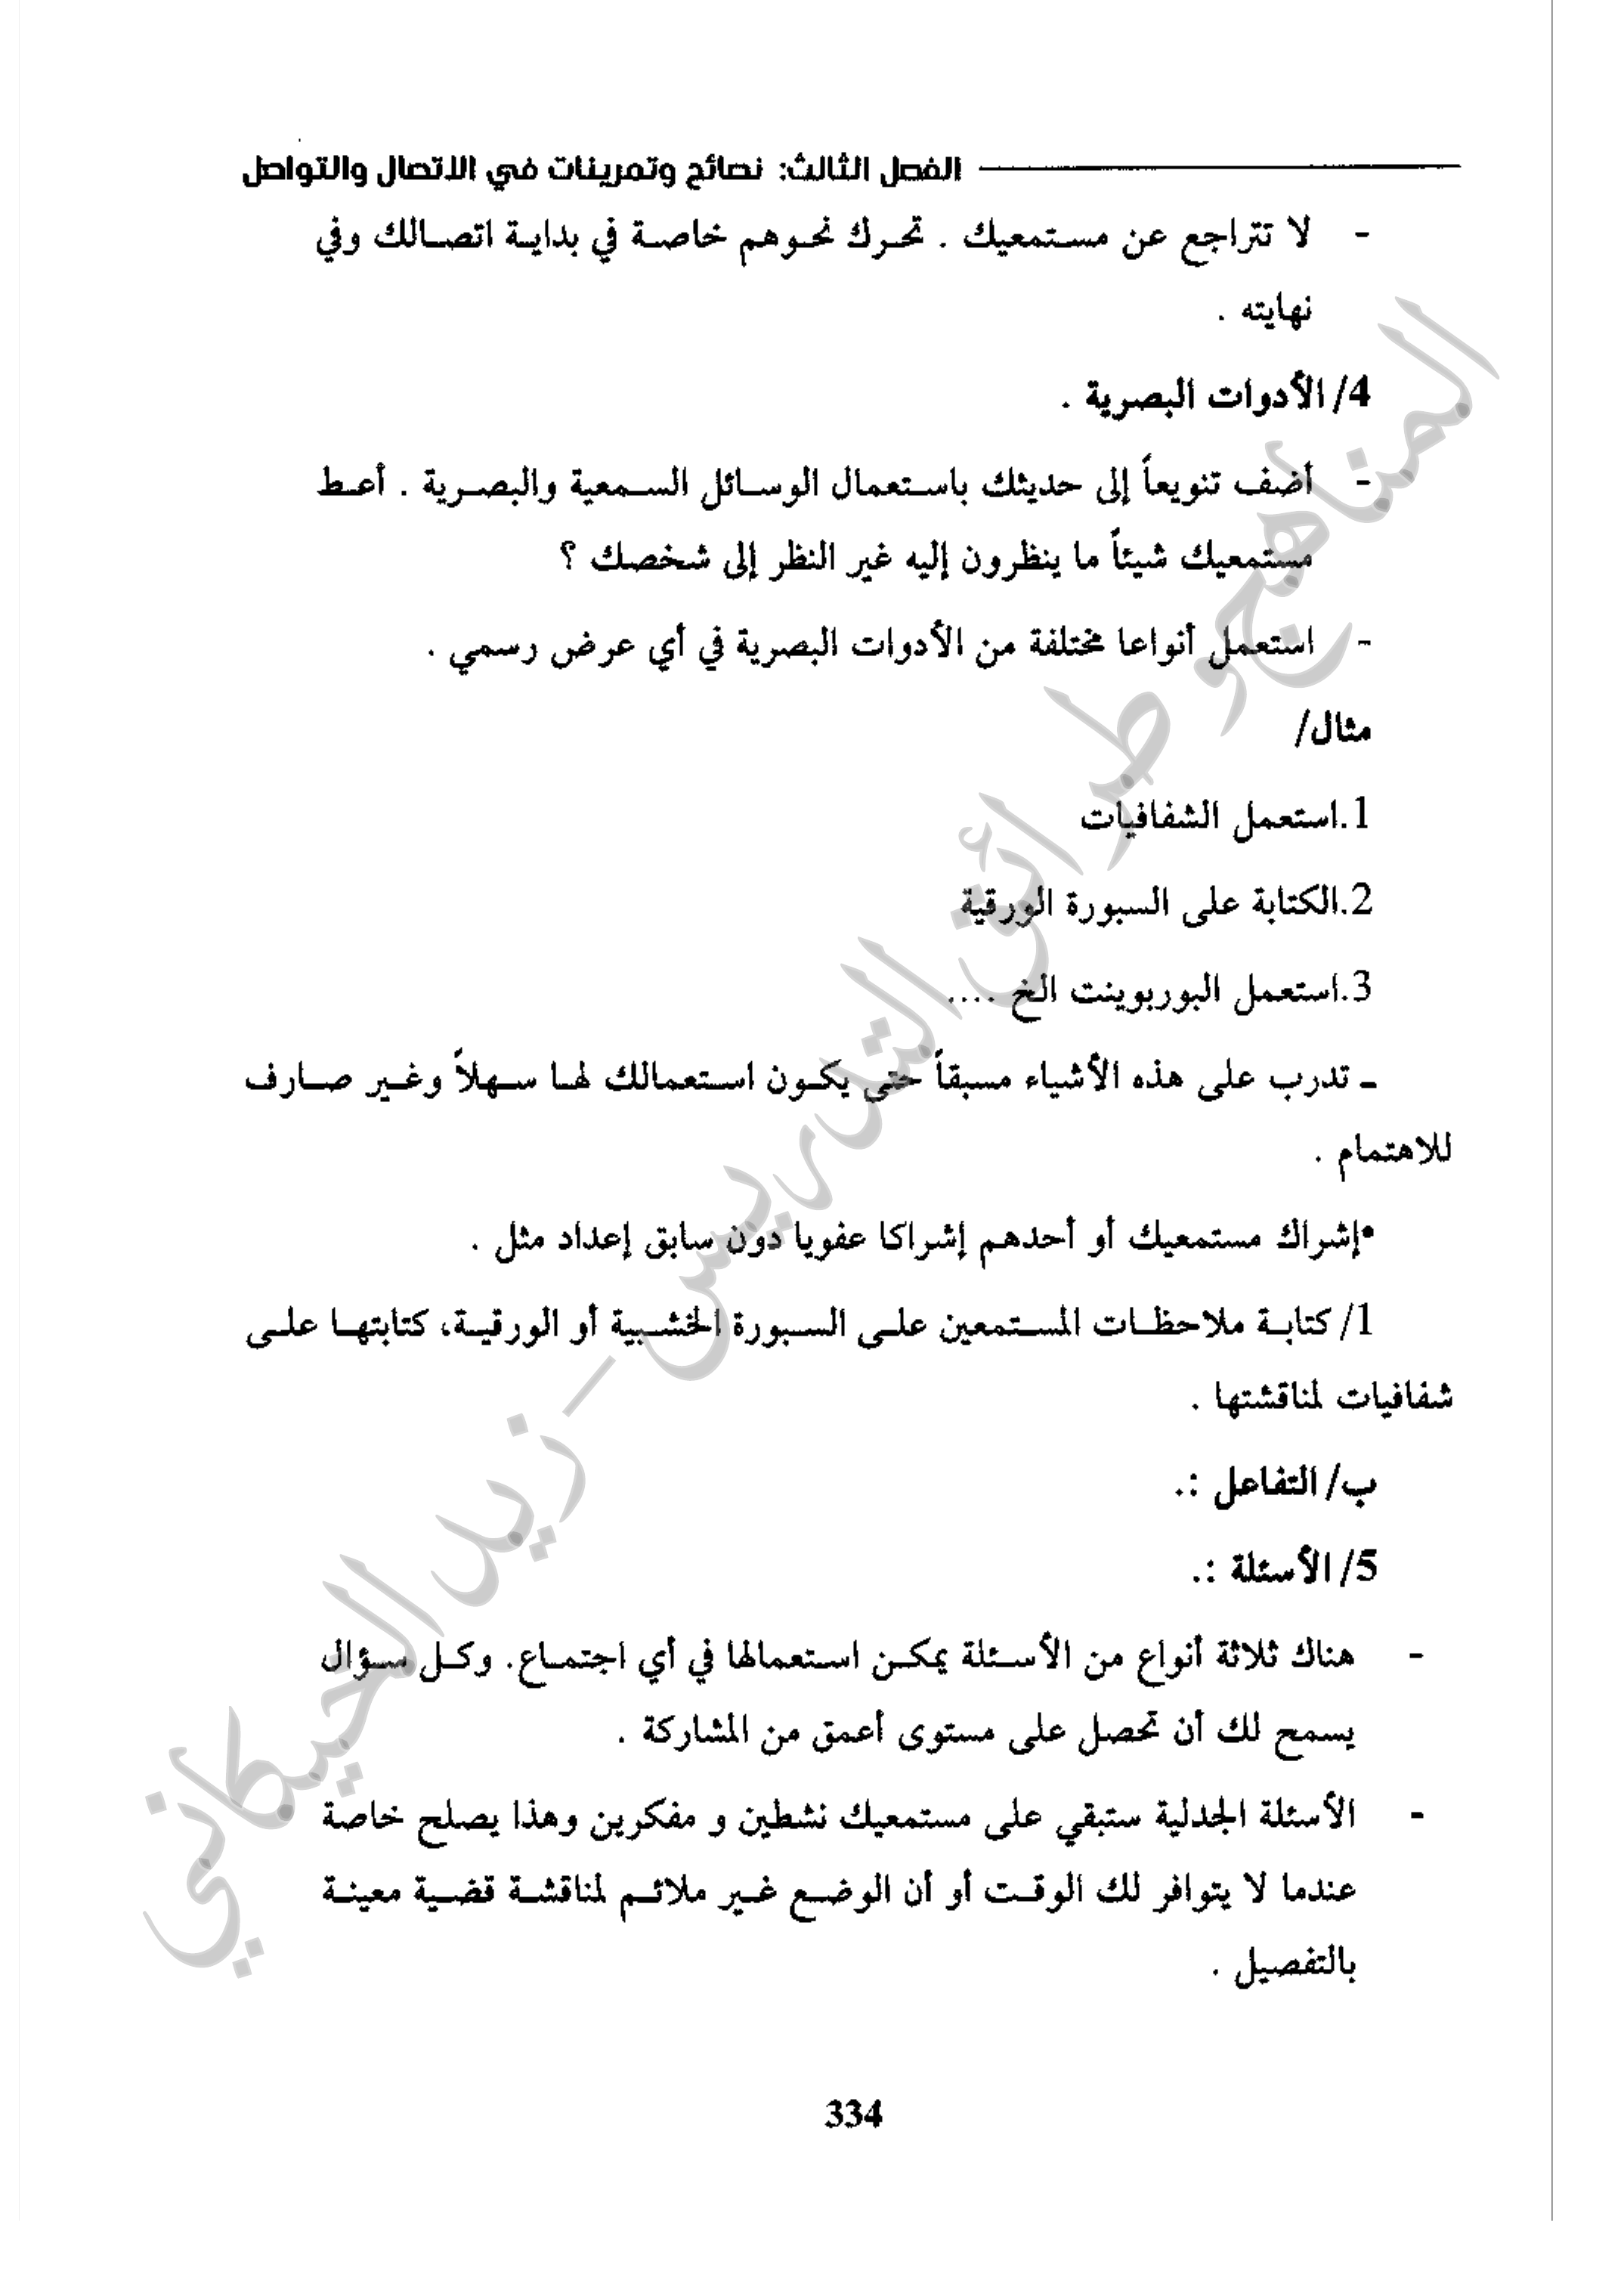 الفصل الثالث: نصائح وتمرينات في الاتصال والتواصل
- لا تتراجع عن مستمعيك . تحرك نحوهم خاصة في بداية اتصالك وفي
نهايته .
4/ الأدوات البصرية .
- أضف تنويعاً إلى حديثك باستعمال الوسائل السمعية والبصرية . أعط
مستمعيك شيئاً ما ينظرون إليه غير النظر إلى شخصك ؟
- استعمل أنواعا مختلفة من الأدوات البصرية في أي عرض رسمي .
مثال/
1.استعمل الشفافيات
2.الكتابة على السبورة الورقية
3.استعمل البوربوينت الخ ....
ـ تدرب على هذه الأشياء مسبقاً حتى يكون استعمالك لها سهلاً وغير صارف
للاهتمام .
•إشراك مستمعيك أو أحدهم إشراكا عفويا دون سابق إعداد مثل .
1/ كتابة ملاحظات المستمعين على السبورة الخشبية أو الورقية، كتابتها على
شفافيات لمناقشتها .
ب/ التفاعل :.
5/ الأسئلة :.
- هناك ثلاثة أنواع من الأسئلة يمكن استعمالها في أي اجتماع. وكل سؤال
يسمح لك أن تحصل على مستوى أعمق من المشاركة .
- الأسئلة الجدلية ستبقي على مستمعيك نشطين و مفكرين وهذا يصلح خاصة
عندما لا يتوافر لك الوقت أو أن الوضع غير ملائم لمناقشة قضية معينة
بالتفصيل .
334
المناهج وطرائق التدريس - زيد الحيكاني